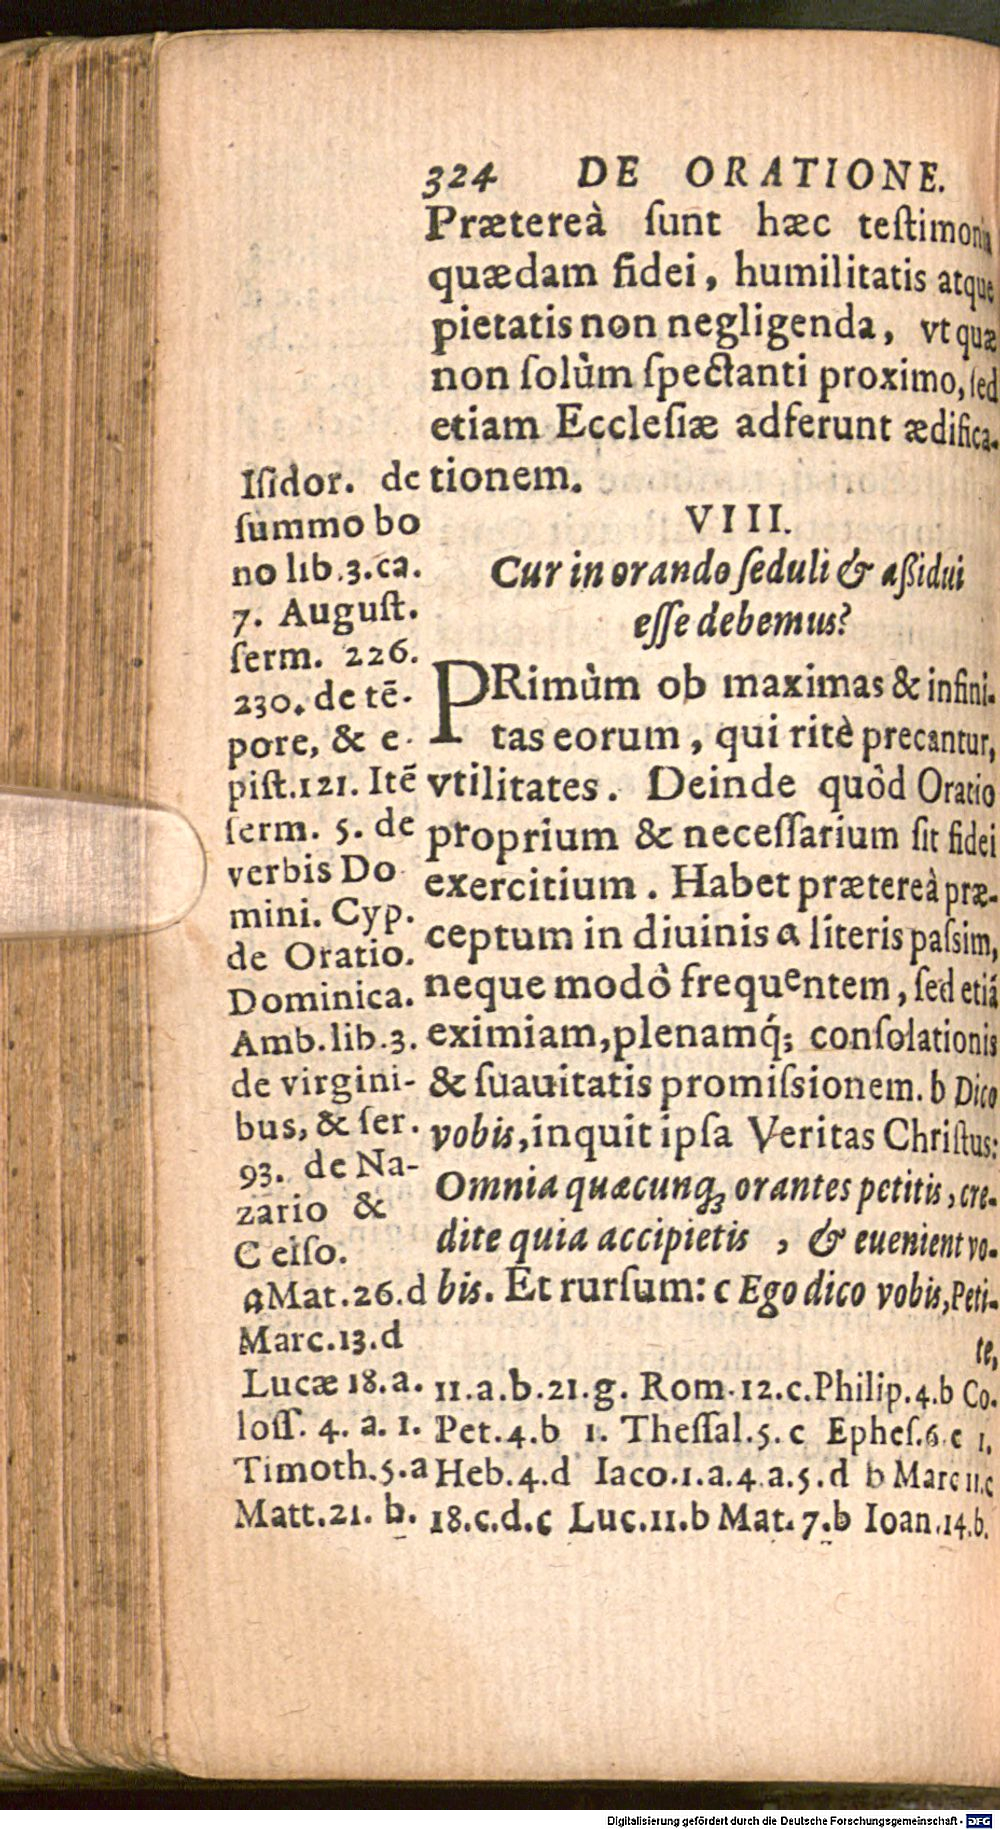 324 DE ORATIONE.
Prætereà ſunt hæc teſtimonia
quædam fidei, humilitatis atque
pietatis non negligenda, vt quæ
non ſolùm ſpectanti proximo, ſed
etiam Eccleſiæ adferunt ædifica-
tionem.
VIII.
Cur in orando ſeduli & aßidui
eſſe debemus?
PRimùm ob maximas & infini-
tas eorum, qui ritè precantur,
vtilitates. Deinde quòd Oratio
proprium & neceſſarium ſit fidei
exercitium. Habet prætereà præ-
ceptum in diuinis a literis paſsim,
neque modò frequentem, ſed etiã
eximiam, plenamq́; conſolationis
& ſuauitatis promiſsionem. b Dico
vobis, inquit ipſa Veritas Chriſtus:
Omnia quæcunq; orantes petitis, cre-
dite quia accipietis, & euenient vo-
bis. Et rurſum: c Ego dico vobis, Peti-
te,
Iſidor. de
ſummo bo
no lib.3.ca.
7. Auguſt.
ſerm. 226.
230. de tē-
pore, & e-
piſt.121. Itē
ſerm. 5. de
verbis Do
mini. Cyp.
de Oratio.
Dominica.
Amb.lib.3.
de virgini-
bus, & ſer.
93. de Na-
zario &
Celſo.
a Mat.26.d
Marc.13.d
Lucæ 18.a. 11.a.b.21.g. Rom.12.c. Philip.4.b Co.
loſſ. 4. a. 1. Pet.4.b 1. Theſſal.5.c Epheſ.6.c 1.
Timoth.5.a Heb.4.d Iaco.1.a.4.a.5.d b Marc 11.c
Matt.21. b. 18.c.d.c Luc.11.b Mat.7.b Ioan.14.b.
Digitalisierung gefördert durch die Deutsche Forschungsgemeinschaft - DFG